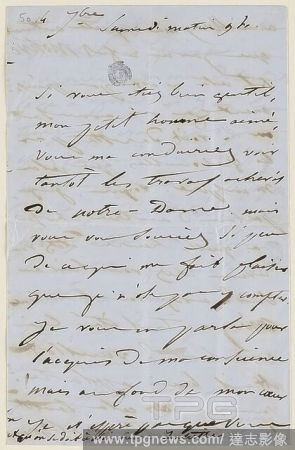 50 4 7bre
Samedi matin 9h.
Si vous étiez bien gentil,
mon petit homme aimé,
vous me conduiriez voir
tantôt les travaux achevés
de notre-Dame. mais
vous vous souciez si peu
de ce qui me fait plaisir
que je n'ose pas y compter.
Je vous en parle pour
l'acquis de ma conscience
mais au fond de mon cœur
je n'espère pas que vous
TPG
www.tpgnews.com/ 達志影像